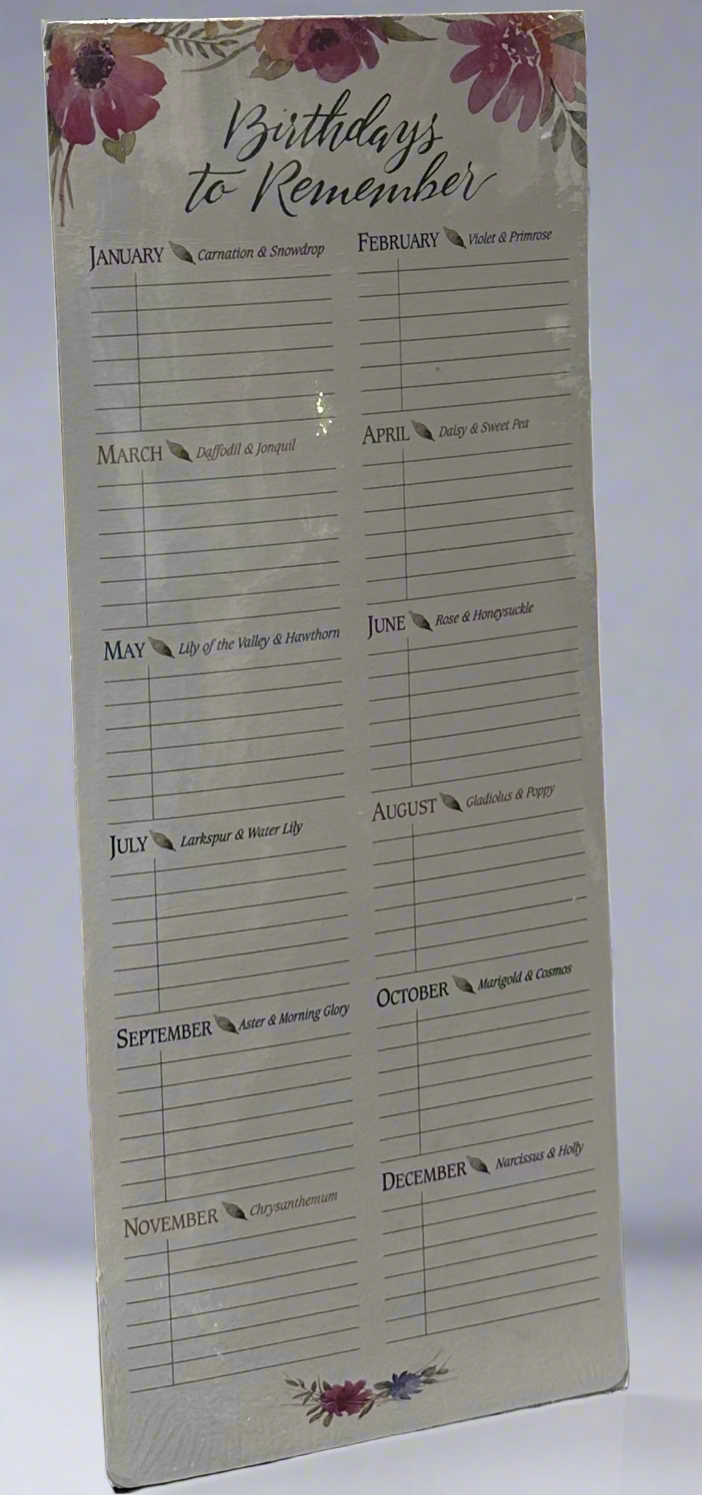 Birthdays
to Remember
JANUARY Carnation & Snowdrop
FEBRUARY Violet & Primrose
MARCH Daffodil & Jonquil
APRIL Daisy & Sweet Pea
MAY Lily of the Valley & Hawthorn
JUNE Rose & Honeysuckle
JULY Larkspur & Water Lily
AUGUST Gladiolus & Poppy
SEPTEMBER Aster & Morning Glory
OCTOBER Marigold & Cosmos
NOVEMBER Chrysanthemum
DECEMBER Narcissus & Holly